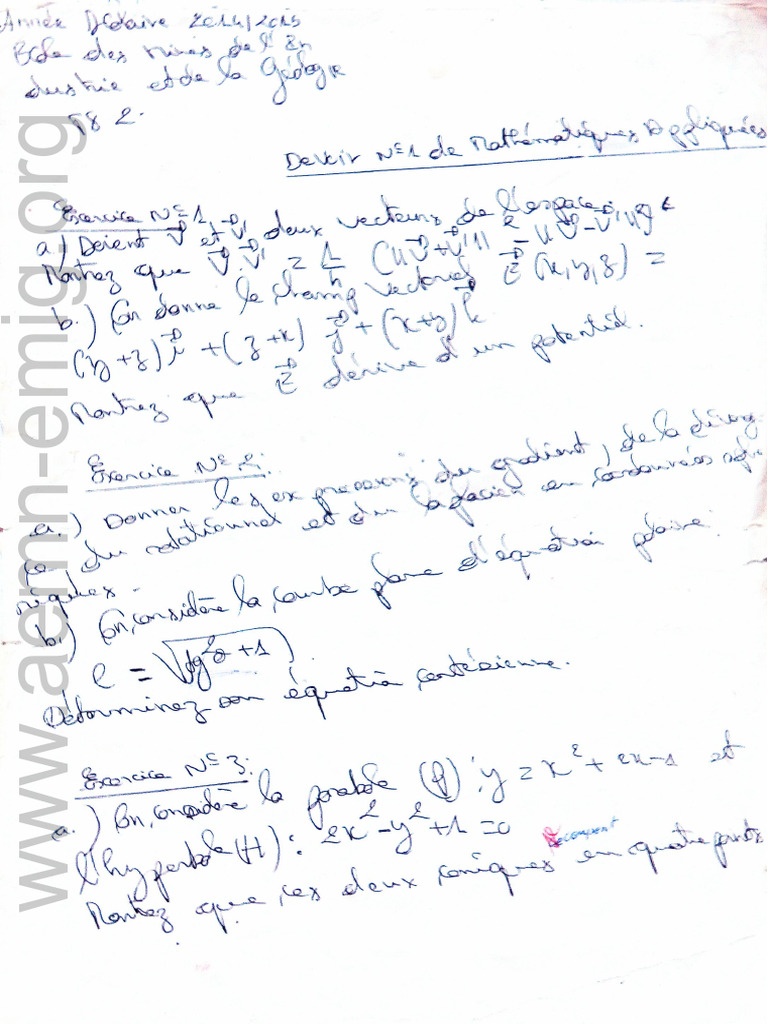 Année Scolaire 2014/2015
Ecole des mines de l'In
dustrie et de la Géologie
TS 2.
Devoir N°1 de Mathématiques Appliquées
Exercice N°1
a.) Soient V⃗ et V⃗' deux vecteurs de l'espace.
Montrez que V⃗.V⃗' = 1/4 (||V⃗+V⃗'||² - ||V⃗-V⃗'||²)
b.) On donne le champ vectoriel E⃗(x,y,z) =
(y+z)i⃗ + (z+x)j⃗ + (x+y)k⃗
Montrez que E⃗ dérive d'un potentiel.
Exercice N°2:
a.) Donner les expressions du gradient, de la diverg
ce du rotationnel et du laplacien en coordonnées sphé
riques.
b.) On considère la courbe plane d'équation polaire:
ρ = √(tg²θ + 1)
Déterminez son équation cartésienne.
Exercice N°3:
a.) On considère la parabole (P): y = x² + 2x - 1 et
l'hyperbole (H): 2x² - y² + 1 = 0
Montrez que ces deux coniques se coupent en quatre points
www.aemn-emig.org